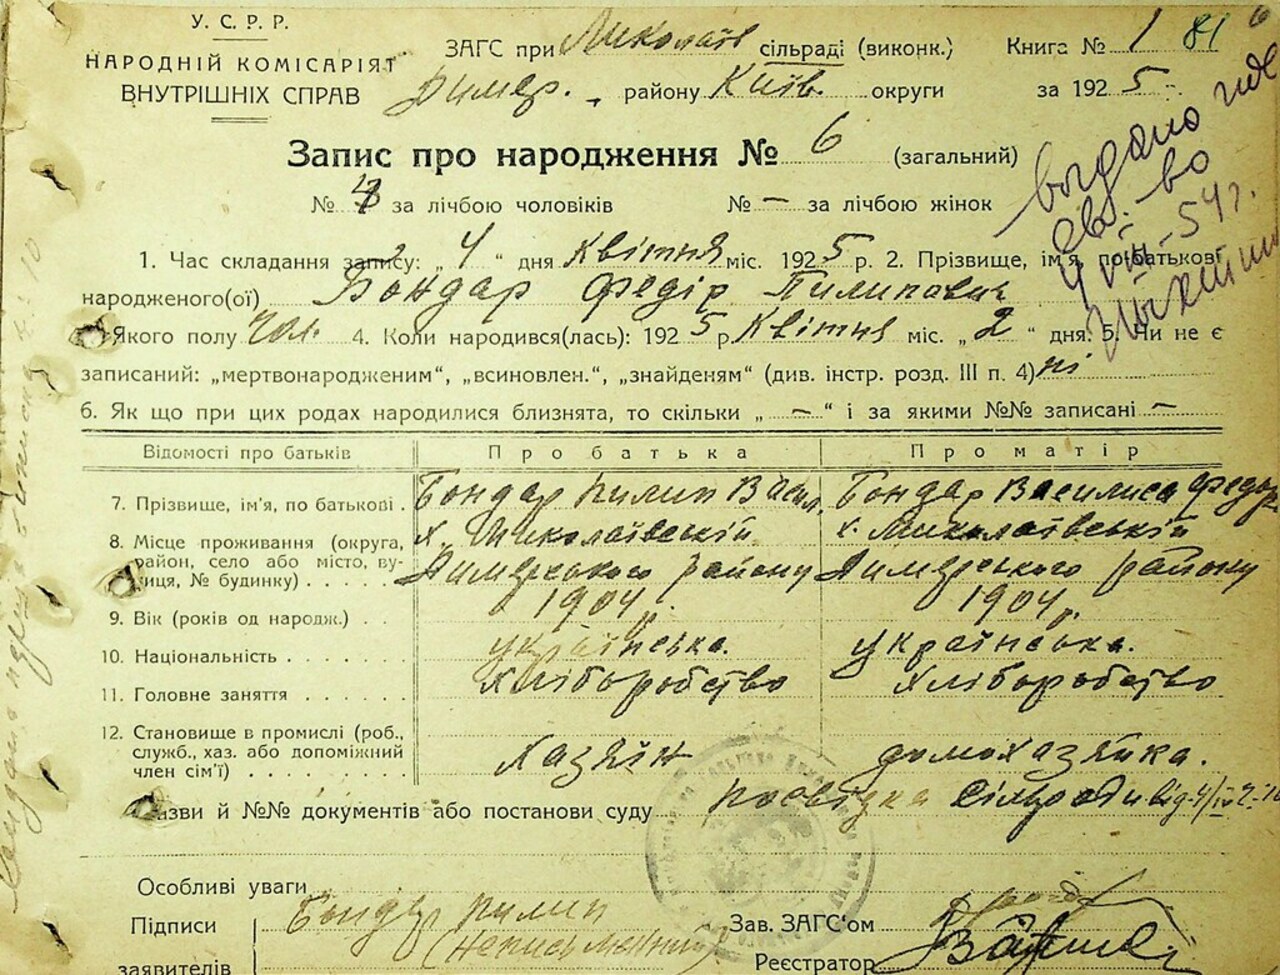 У. С. Р. Р.
НАРОДНІЙ КОМІСАРІЯТ
ВНУТРІШНІХ СПРАВ
ЗАГС при Миколаїв сільраді (виконк.) Книга № 1 81
Димер. району Київ. округи за 1925
Запис про народження № 6 (загальний)
№ за лічбою чоловіків № — за лічбою жінок
видано
св. во
4 VIII - 54 г.
1. Час складання запису: „ 4 “ дня квітня міс. 1925 р. 2. Прізвище, ім'я, по батькові
народженого(ої) Бондар Федір Пилипович
Якого полу чол. 4. Коли народився(лась): 1925 р. Квітня міс. „ 2 “ дня. 5. Чи не є
записаний: „мертвонародженим“, „всиновлен.“, „знайденям“ (див. інстр. розд. III п. 4) ні
6. Як що при цих родах народилися близнята, то скільки „ — “ і за якими №№ записані —
Відомості про батьків Про батька Про матір
7. Прізвище, ім'я, по батькові . Бондар Пилип Васил. Бондар Василиса Федор
8. Місце проживання (округа, х. Миколаївській х. Миколаївській
район, село або місто, ву-
лиця, № будинку) . . . . . Димерського району Димерського району
9. Вік (років од народж.) . . 1904 р. 1904 р.
10. Національність . . . . . . . українська. українська.
11. Головне заняття . . . . . . хліборобство хліборобство
12. Становище в промислі (роб.,
служб., хаз. або допоміжний
член сім'ї) . . . . . . . . . хазяїн домохазяйка.
Назви й №№ документів або постанови суду посвідка Сільради від 4/IV
Особливі уваги
Підписи Бондар Пилип Зав. ЗАГС'ом
заявителів (неписьменний) Реєстратор